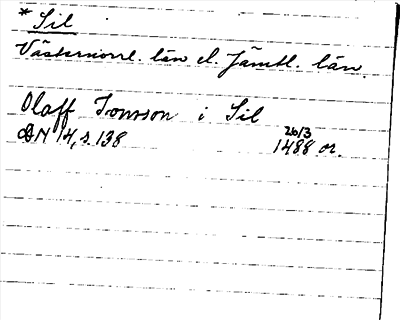 * Sil
Västernorrl. län el. Jämtl. län
Olaff Jonsson i Sil
DN 14, s. 138 26/3 1488 or.